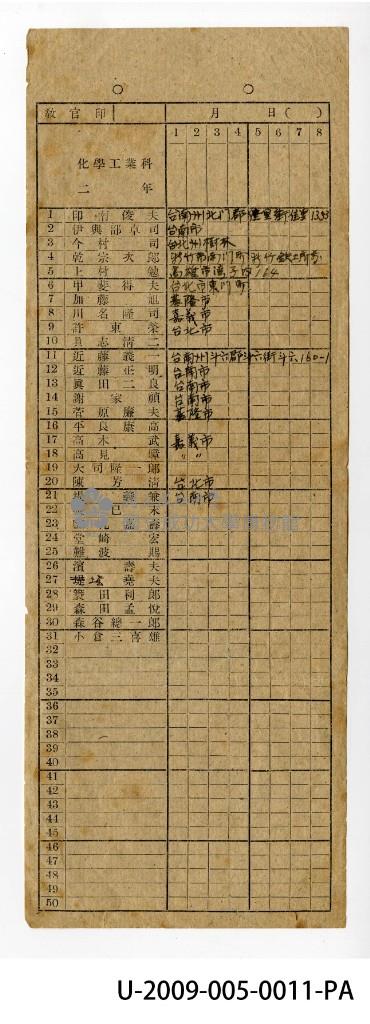 教官印 月 日( )
1 2 3 4 5 6 7 8
化學工業科
二年
1 印南俊夫 台南州北門郡佳里街佳里1393
2 伊與部卓司 台南市
3 今村司 台北州樹林
4 乾宗次郎 新竹市南門町
5 上村勉 高雄市
6 甲斐得夫 台北市東門町
7 加藤旭 基隆市
8 川名隆司 嘉義市
9 許東榮 台北市
10 貝志清二
11 近藤義一 台南州斗六郡斗六街斗六160-1
12 近藤正明 台南市
13 眞田二良 台南市
14 謝家禎 台南市
15 菅原廉夫 基隆市
16 平良康高
17 高木武 嘉義市
18 高見暲 〃 〃
19 大司隆一郎
20 陳芳清 台北市
21 兼 台南市
22 巳未
23 壽
24 堂崎宏
25 難波賜
26 濱壽夫
27 堯夫
28 蓑田利郎
29 森田孟悅
30 森谷總一郎
31 小倉三喜雄
32
33
34
35
36
37
38
39
40
41
42
43
44
45
46
47
48
49
50
成功大學博物館
U-2009-005-0011-PA